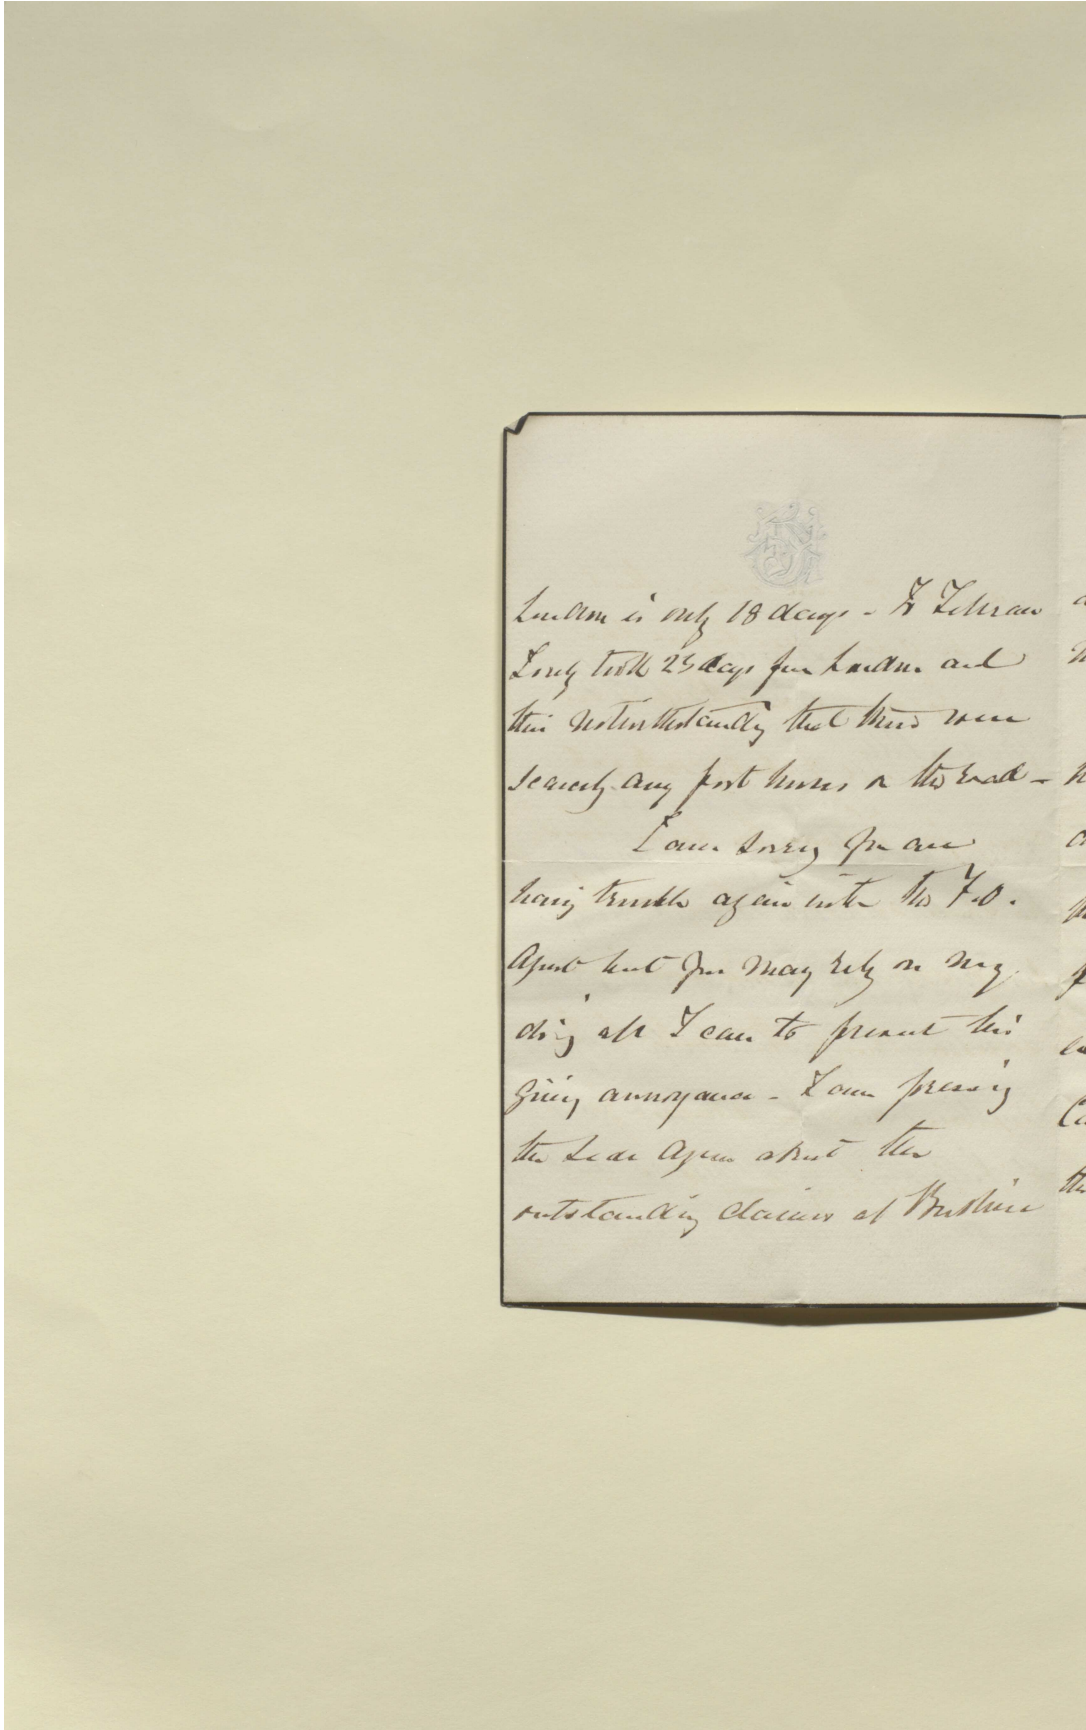 London is only 18 days - To Tehran
I only took 25 days from London and
this notwithstanding that there were
scarcely any post horses on the road -
I am sorry you are
having trouble again with the F.O.
Agent but you may rely on my
doing all I can to prevent his
giving annoyance - I am pressing
the Sadr Azem about the
outstanding claims at Bushire